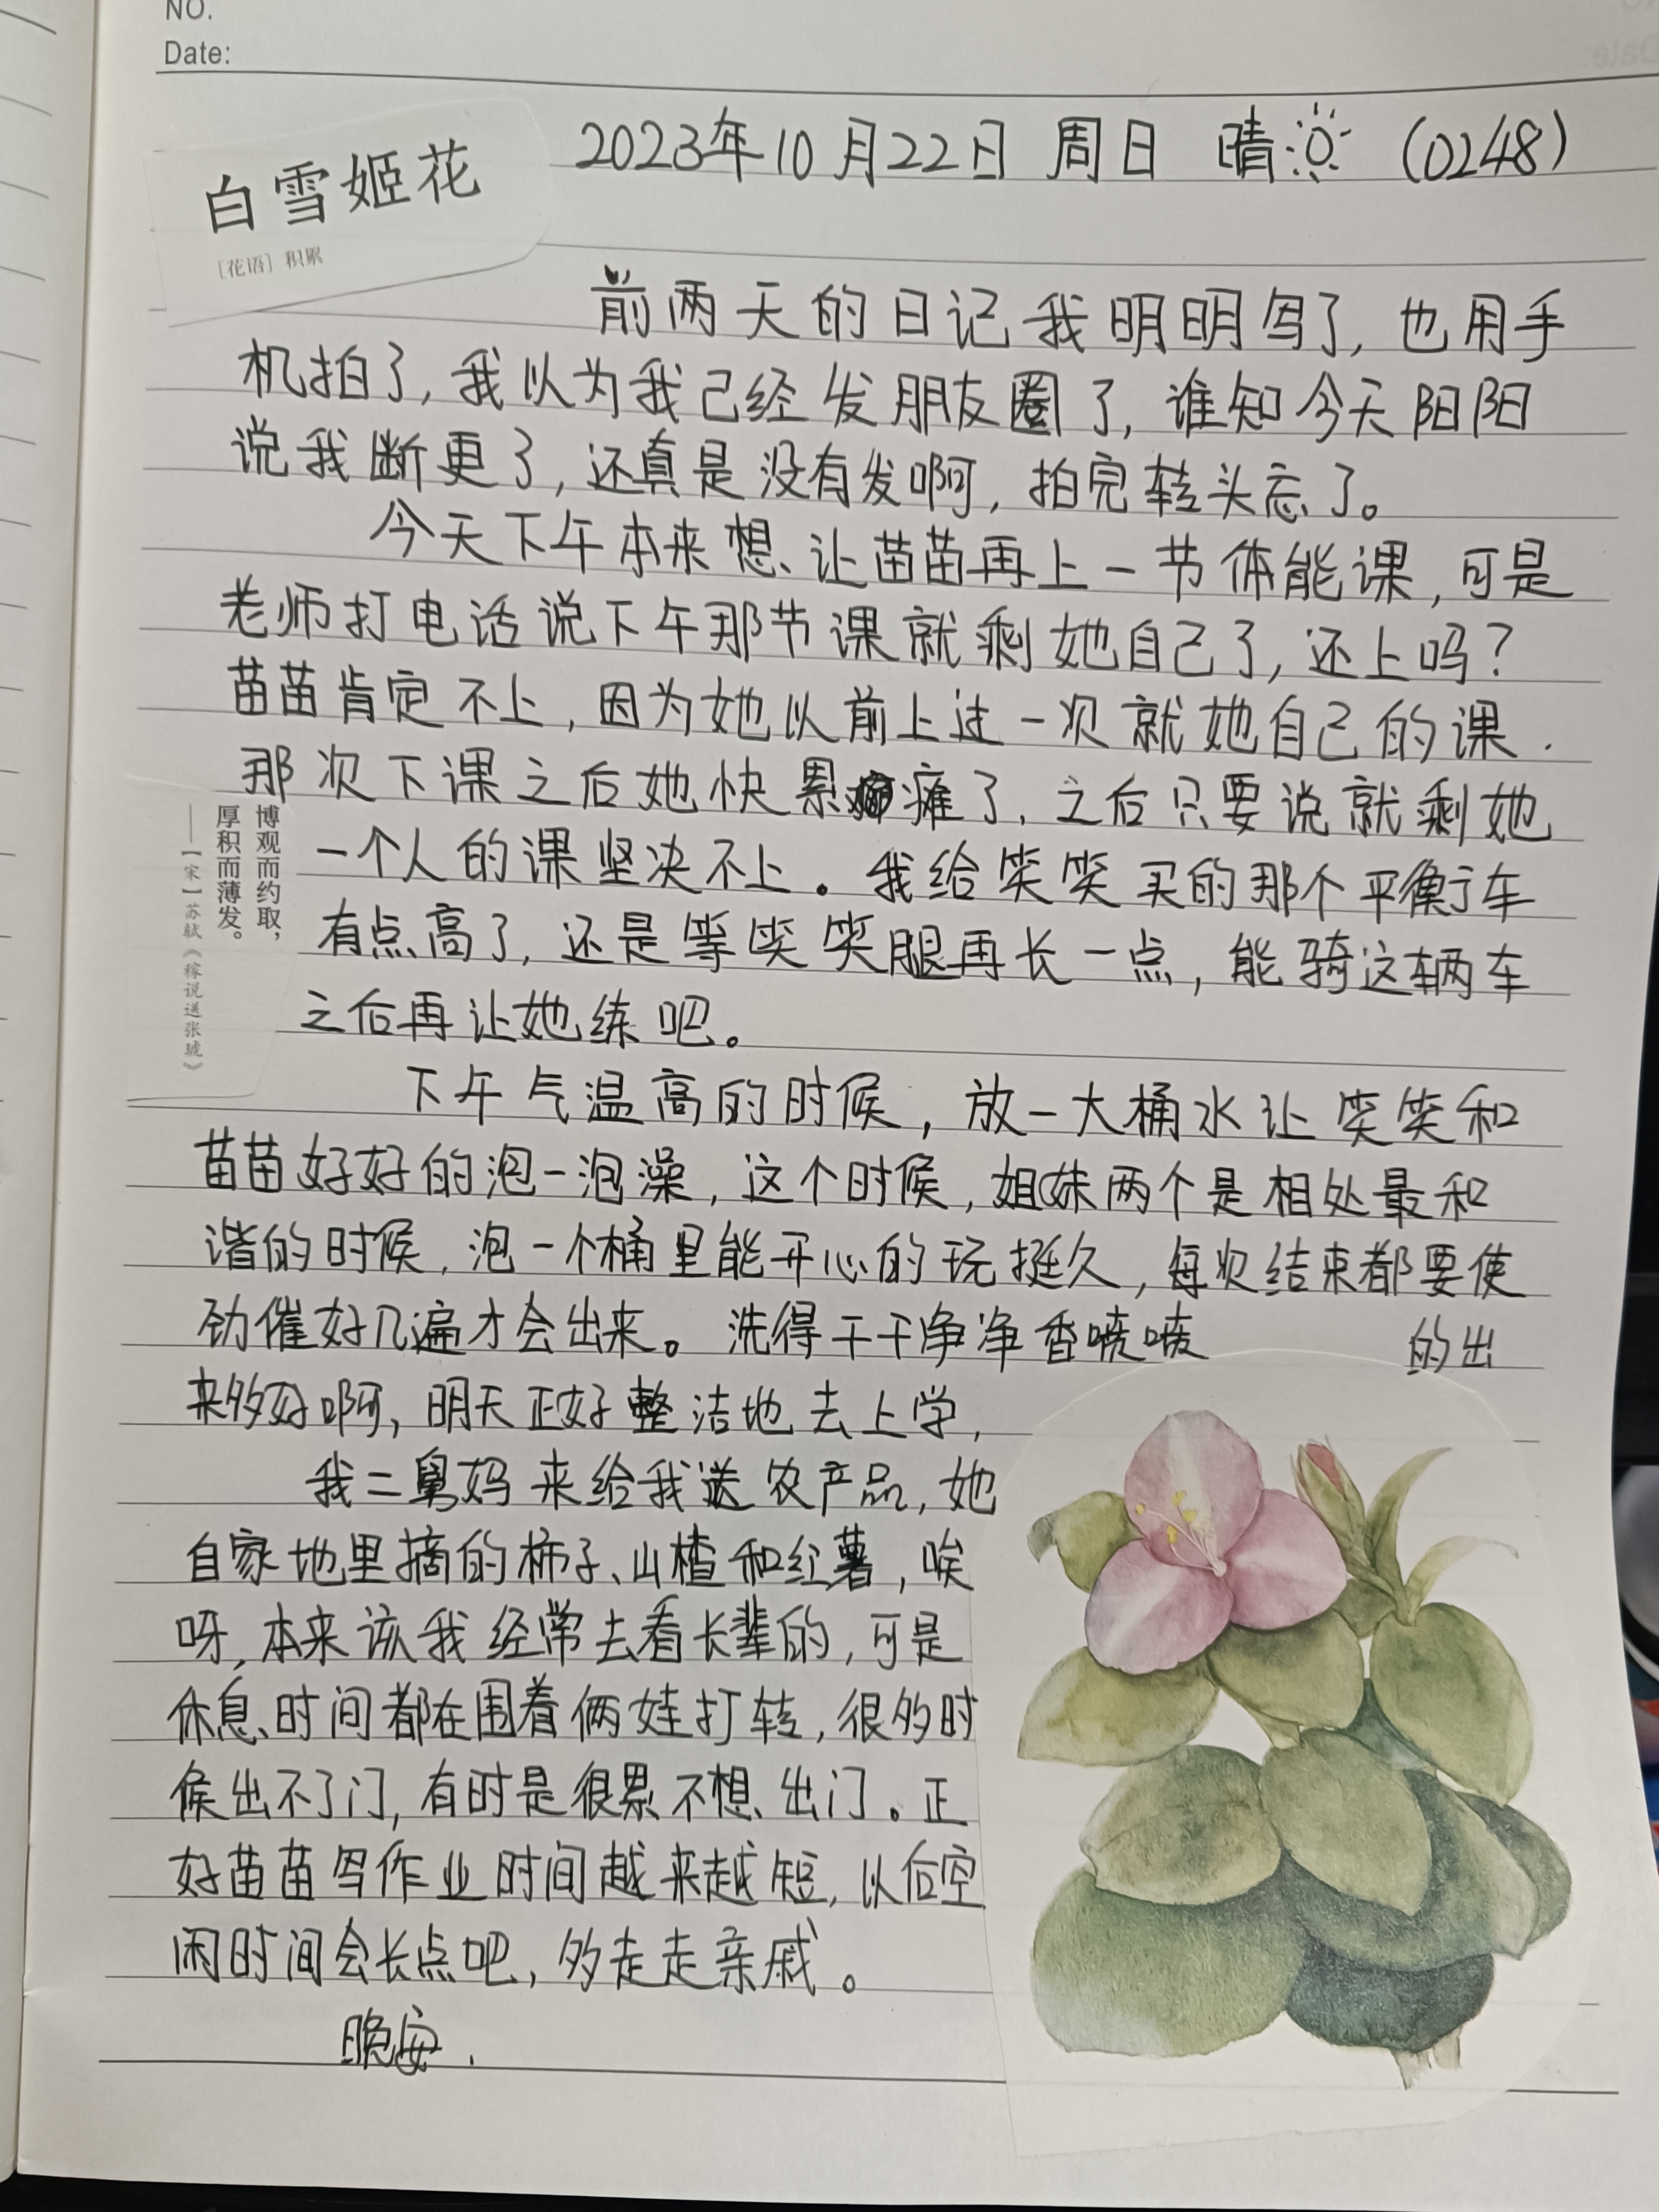 NO.
Date:
2023年10月22日 周日 晴 (0248)
白雪姬花
［花语］积累
前两天的日记我明明写了，也用手
机拍了，我以为我已经发朋友圈了，谁知今天阳阳
说我断更了，还真是没有发啊，拍完转头忘了。
今天下午本来想让苗苗再上一节体能课，可是
老师打电话说下午那节课就剩她自己了，还上吗？
苗苗肯定不上，因为她以前上过一次就她自己的课.
那次下课之后她快累瘫了，之后只要说就剩她
一个人的课坚决不上。我给笑笑买的那个平衡车
有点高了，还是等笑笑腿再长一点，能骑这辆车
之后再让她练吧。
博观而约取，
厚积而薄发。
——［宋］苏轼《稼说送张琥》
下午气温高的时候，放一大桶水让笑笑和
苗苗好好的泡一泡澡，这个时候，姐妹两个是相处最和
谐的时候，泡一个桶里能开心的玩挺久，每次结束都要使
劲催好几遍才会出来。洗得干干净净香喷喷的出
来多好啊，明天正好整洁地去上学，
我二舅妈来给我送农产品，她
自家地里摘的柿子、山楂和红薯，唉
呀，本来该我经常去看长辈的，可是
休息时间都在围着俩娃打转，很多时
候出不了门，有时是很累不想出门。正
好苗苗写作业时间越来越短，以后空
闲时间会长点吧，多走走亲戚。
晚安.